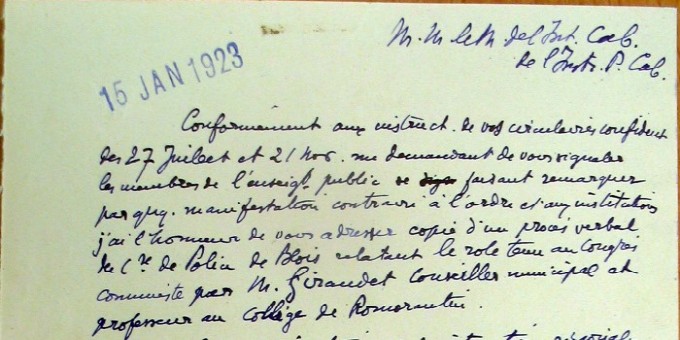 15 JAN 1923
M. M le M. de l'Int. Cab.
de l'Instr. P. Cab.
Conformément aux instruct. de vos circulaires confident
des 27 Juillet et 21 nov. me demandant de vous signaler
les membres de l'enseigt. public se faisant remarquer
par qq. manifestation contraire à l'ordre et aux institutions
j'ai l'honneur de vous adresser copie d'un procès verbal
de Cre de Police de Blois relatant le role tenu au Congrès
communiste par M. Giraudet Conseiller municipal et
professeur au Collège de Romorantin.